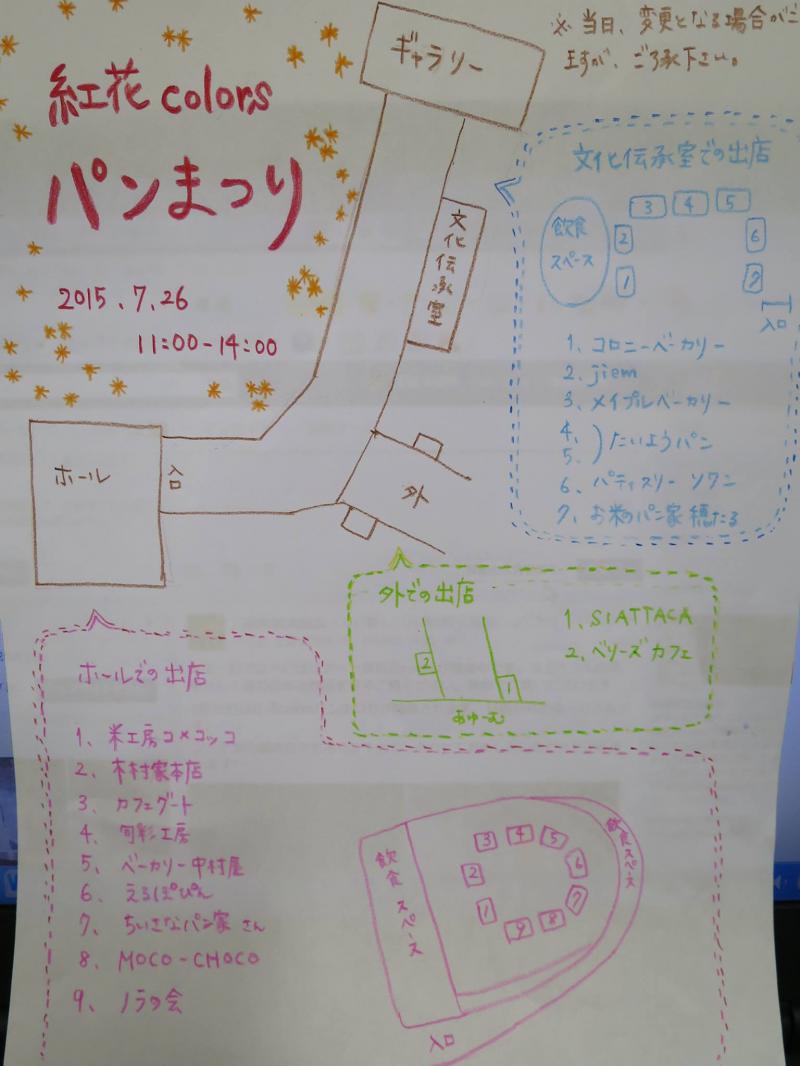 紅花 colors
パンまつり
2015.7.26
11:00-14:00
※当日、変更となる場合がご
ますが、ご了承下さい。
ギャラリー
文化伝承室
ホール
入口
外
文化伝承室での出店
飲食
スペース
1
2
3
4
5
6
7
入口
1、コロニーベーカリー
2、jiem
3、メイプルベーカリー
4、
5、)たいようパン
6、パティスリー ソワン
7、お米のパン家 穂たる
外での出店
2
1
あゆーむ
1、SIATTACA
2、ベリーズカフェ
ホールでの出店
1、米工房コメコッコ
2、木村家本店
3、カフェグート
4、旬彩工房
5、ベーカリー中村屋
6、えるぽぴん
7、ちいさなパン家 さん
8、MOCO-CHOCO
9、ノラの会
飲食スペース
1
2
3
4
5
6
7
8
9
飲食スペース
入口